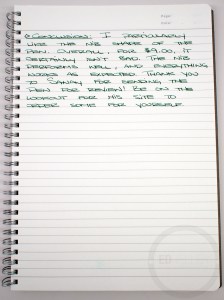 Conclusion: I particularly
like the nib shape of the
pen. Overall, for $9.00, it
certainly isn't bad. The nib
performs well, and everything
works as expected. Thank you
to Sanjay for sending the
pen for review! Be on the
lookout for his site to
order some for yourself.